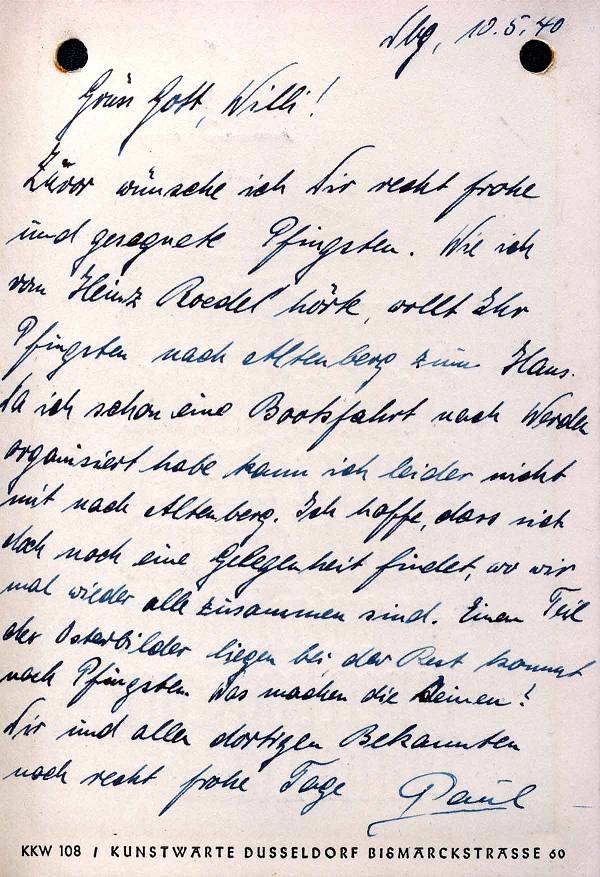 Dbg, 10.5.40
Grüss Gott, Willi!
Zuvor wünsche ich Dir recht frohe
und gesegnete Pfingsten. Wie ich
vom Heinz Roedel hörte, wollt Ihr
Pfingsten nach Altenberg zum Haus.
Da ich schon eine Bootsfahrt nach Werden
organisiert habe kann ich leider nicht
mit nach Altenberg. Ich hoffe, dass sich
doch noch eine Gelegenheit findet, wo wir
mal wieder alle zusammen sind. Einen Teil
der Osterbilder liegen bei, der Rest kommt
nach Pfingsten. Was machen die Deinen?
Dir und allen dortigen Bekannten
noch recht frohe Tage Paul
KKW 108 / KUNSTWARTE DUSSELDORF BISMARCKSTRASSE 60